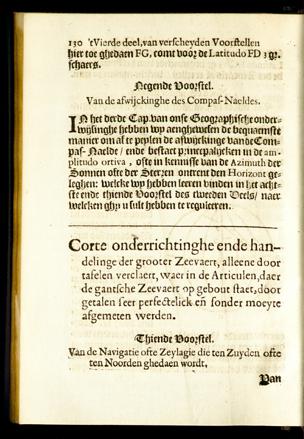 130 'tVierde deel, van verscheyden Voorstellen
hier toe ghedaen FG, comt voor de Latitudo FD 3 gr.
schaers.
Negende Voorstel.
Van de afwijckinghe des Compas-Naeldes.
IN het derde Cap. van onse Geographische onder-
wijsinghe hebben wy aenghewesen de bequaemste
manier om af te peylen de afwijckinge vande Com-
pas-Naelde / ende bestaet principalijcken in de am-
plitudo ortiva, ofte in kennisse van de Azimuth der
Sonnen ofte der Sterren ontrent den Horizont ge-
leghen: welcke wy hebben leeren vinden in het acht-
ste ende thiende Voorstel des tweeden Deels/ naer
welcken ghy u sult hebben te reguleeren.
Corte onderrichtinghe ende han-
delinge der grooter Zeevaert, alleene door
tafelen verclaert, waer in de Articulen, daer
de gantsche Zeevaert op gebout staet, door
getalen seer perfectelick eñ sonder moeyte
afgemeten werden.
Thiende Voorstel.
Van de Navigatie ofte Zeylagie die ten Zuyden ofte
ten Noorden ghedaen wordt,
Van